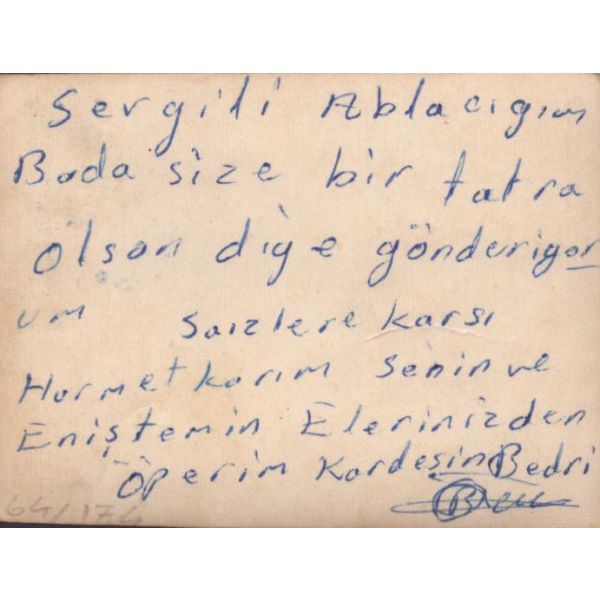 Sergili Ablacıgım
Buda size bir tatra
olson diye gönderiyor
um saizlere karsı
Hormetkorım Senin ve
Eniştemin Elerinizden
Öperim Kardeşin Bedri
64/174